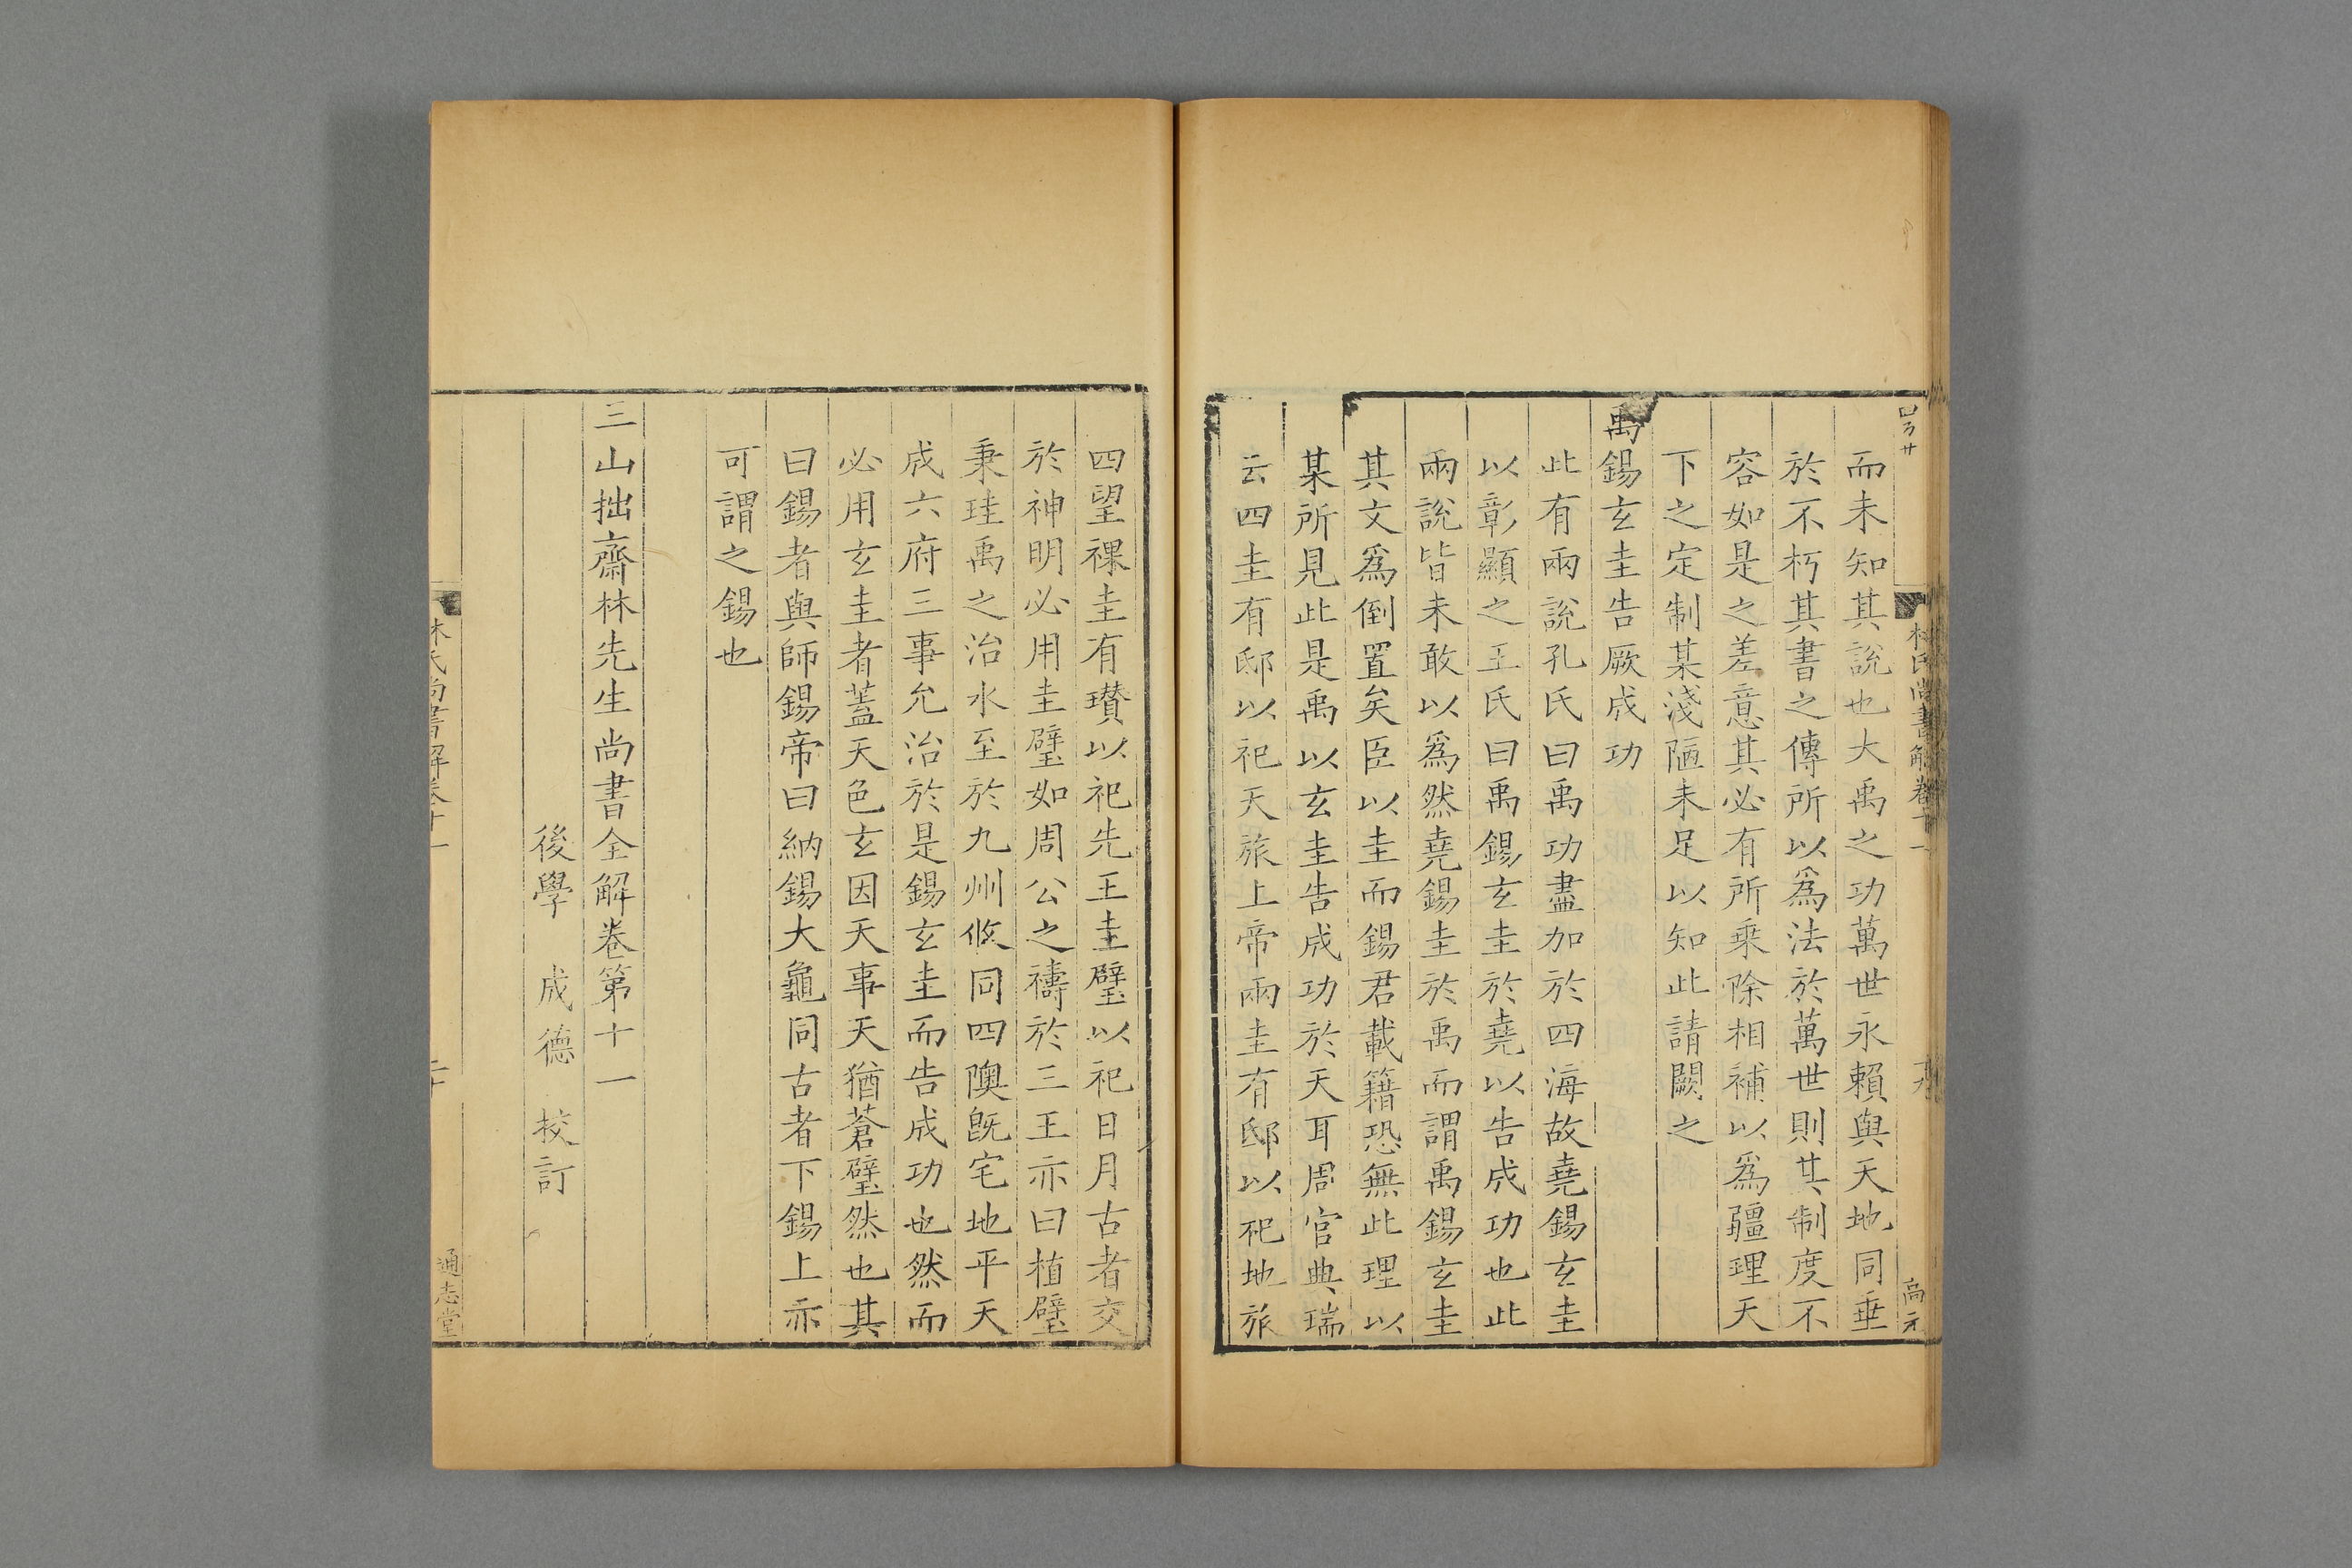 而未知其說也大禹之功萬世永賴與天地同垂
於不朽其書之傳所以爲法於萬世則其制度不
容如是之差意其必有所乗除相補以爲疆理天
下之定制某淺陋未足以知此請闕之
禹錫玄圭告厥成功
此有兩說孔氏曰禹功盡加於四海故堯錫玄圭
以彰顯之王氏曰禹錫玄圭於堯以告成功也此
兩說皆未敢以爲然堯錫圭於禹而謂禹錫玄圭
其文爲倒置矣臣以圭而錫君載籍恐無此理以
某所見此是禹以玄圭告成功於天耳周官典瑞
云四圭有邸以祀天旅上帝兩圭有邸以祀地旅
四望祼圭有瓚以祀先王圭璧以祀日月古者交
於神明必用圭璧如周公之禱於三王亦曰植璧
秉珪禹之治水至於九州攸同四隩既宅地平天
成六府三事允治於是錫玄圭而告成功也然而
必用玄圭者蓋天色玄因天事天猶蒼璧然也其
曰錫者與師錫帝曰納錫大龜同古者下錫上亦
可謂之錫也
三山拙齋林先生尚書全解卷第十一
後學 成德 校訂
林氏尚書解卷十一
通志堂